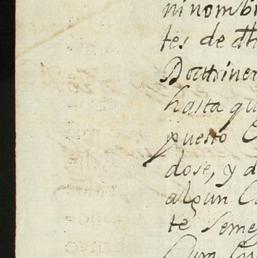 ni nombr
tes de dh
Dottriner
hasta qu
puesto C
dose, y d
algun C
te seme
Cura Cu